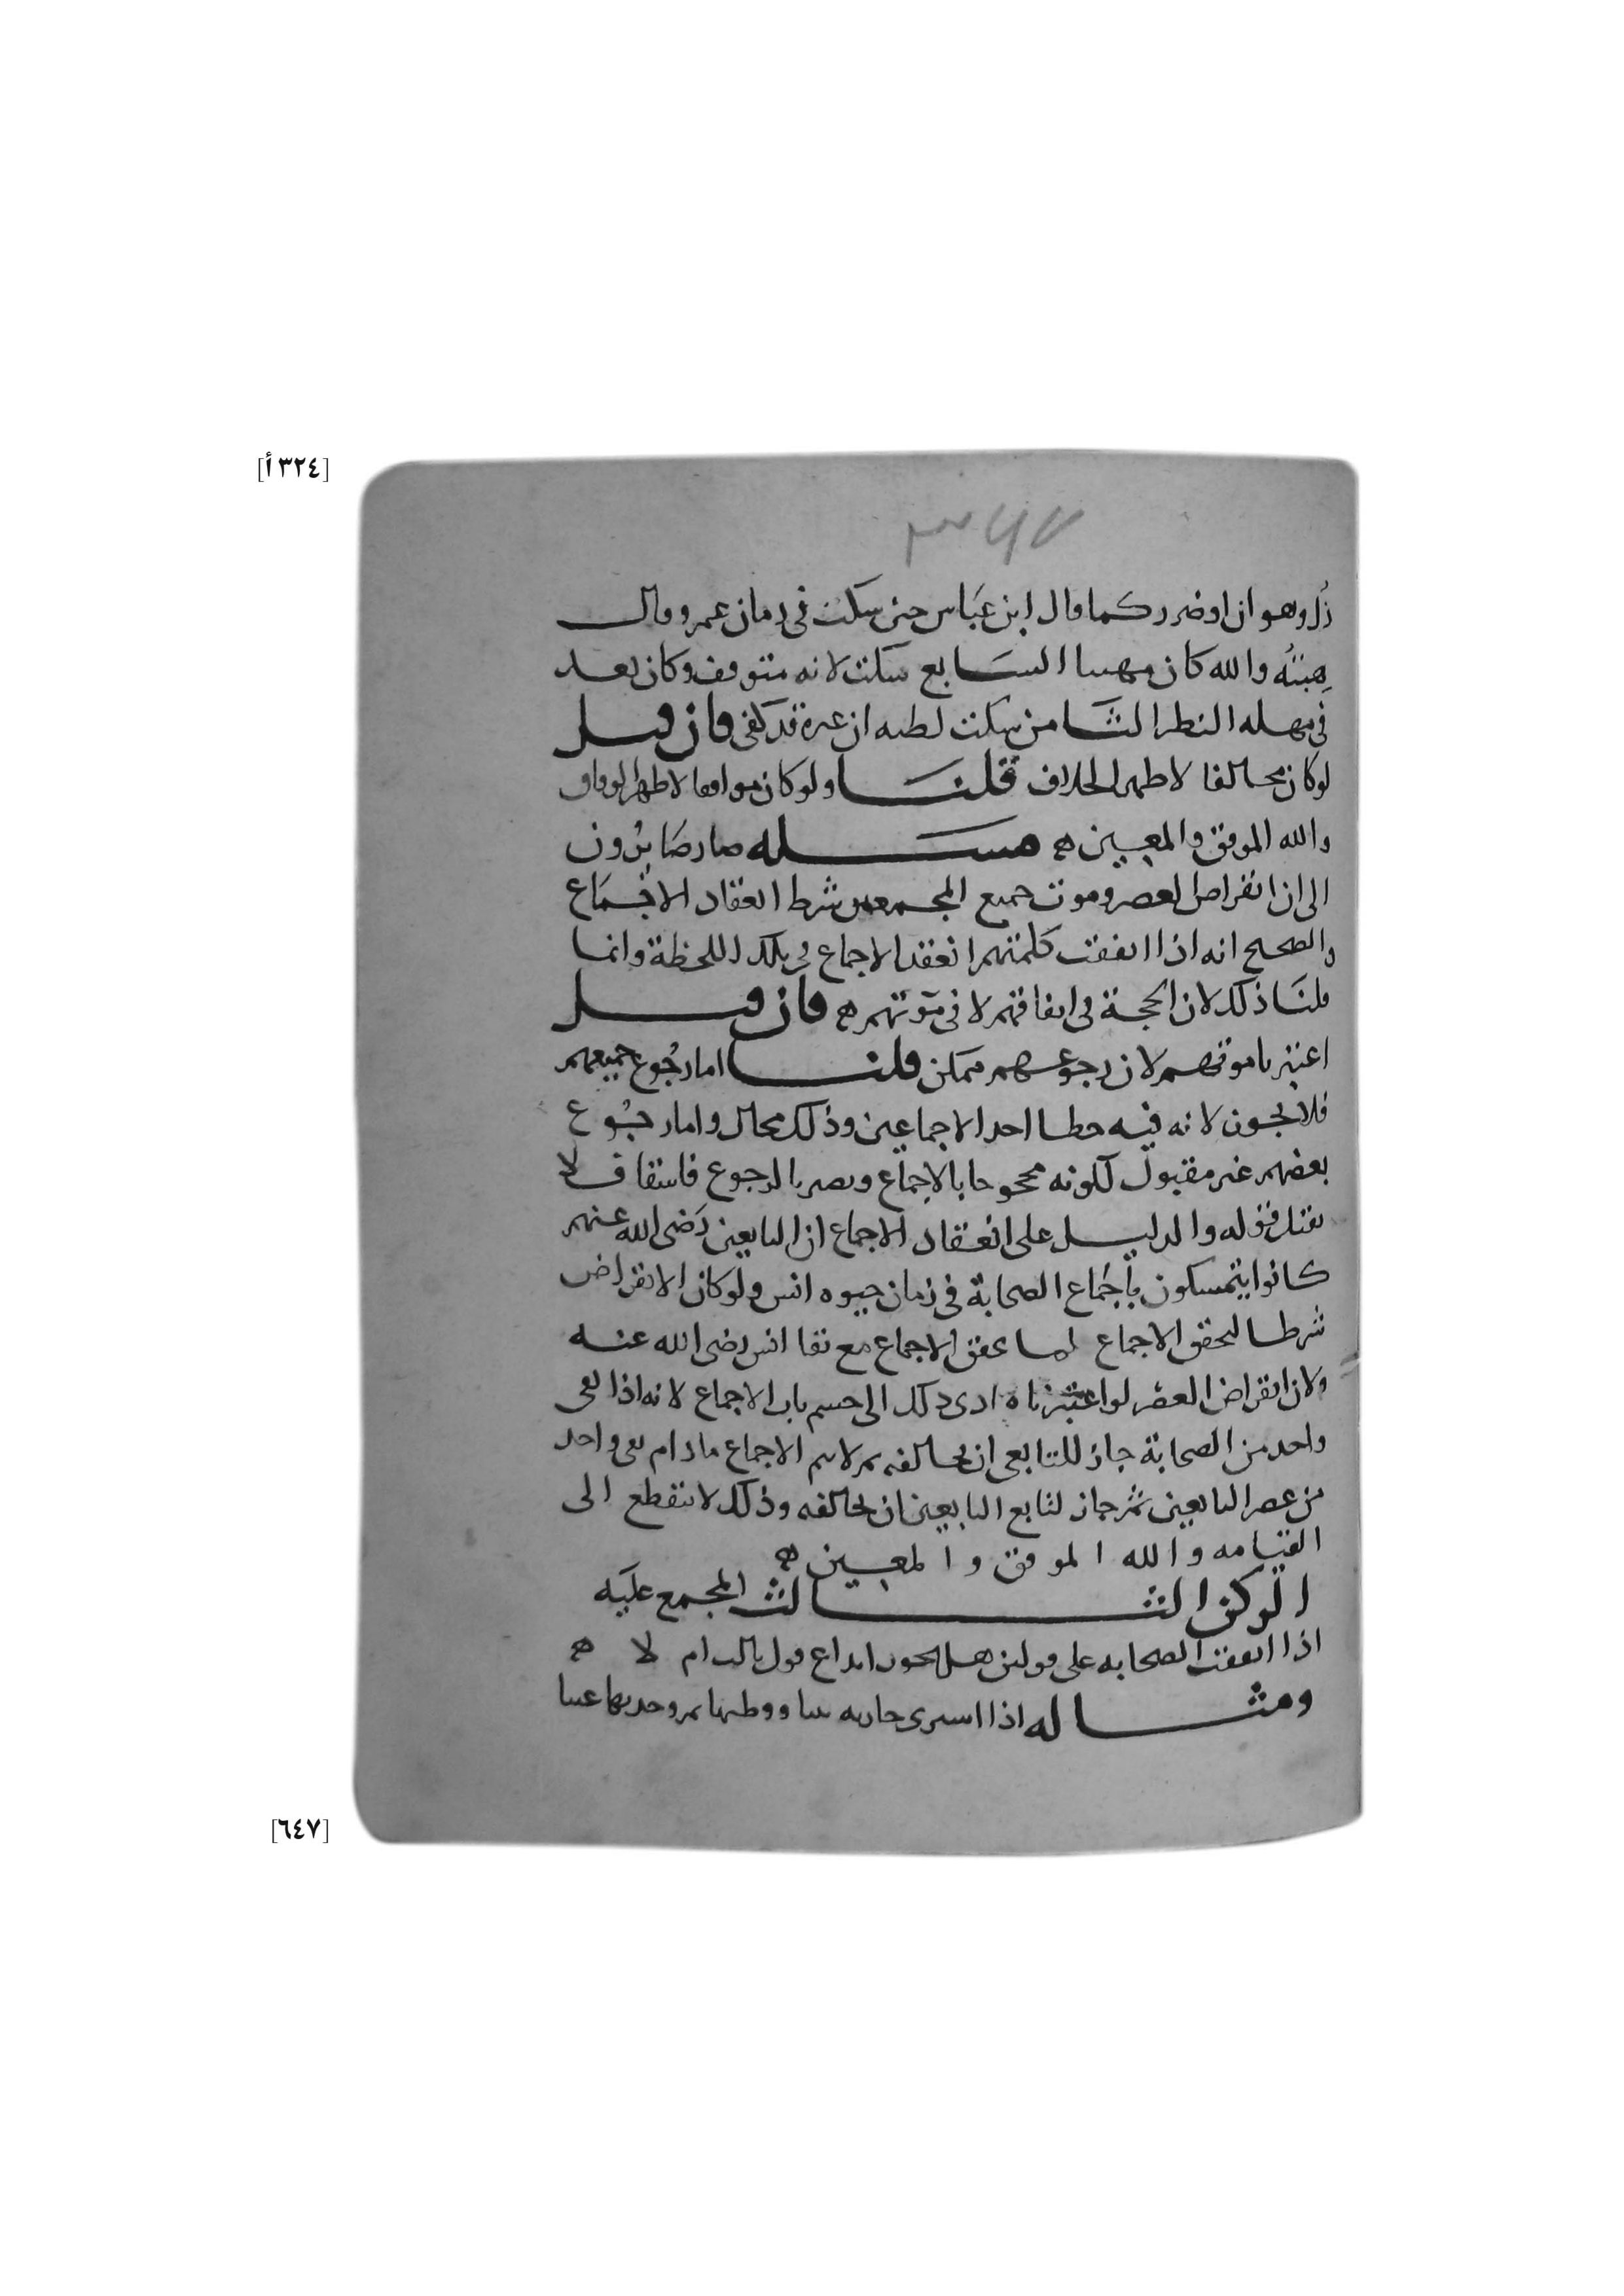 [٣٢٤أ]
ذل وهوان او ضرر كما قال ابن عباس حين سكت في زمان عمر وقال
هبته والله كان مهيبا السابع سكت لانه متوقف وكان بعد
في مهلة النظر الثامن سكت لظنه ان غيره قد كفى فان قيل
لو كان مخالفا لاظهر الخلاف قلنا ولو كان موافقا لاظهر الوفاق
والله الموفق والمعين ه مسله صار صايرون
الى ان انقراض العصر وموت جميع المجمعين شرط انعقاد الاجماع
والصحيح انه اذا اتفقت كلمتهم انعقد الاجماع في تلك اللحظة وانما
قلنا ذلك لان الحجة في اتفاقهم لا في موتهم ه فان قيل
اعتبرنا موتهم لان رجوعهم ممكن قلنا اما رجوع جميعهم
فلا يجوز لانه فيه خطا احد الاجماعين وذلك محال واما رجوع
بعضهم غير مقبول لكونه محجوجا بالاجماع ويصير بالرجوع فاسقا فلا
يقبل قوله والدليل على انعقاد الاجماع ان التابعين رضى الله عنهم
كانوا يتمسكون باجماع الصحابة في زمان حيوه انس ولو كان الانقراض
شرطا لتحقق الاجماع لما تحقق الاجماع مع بقا انس رضى الله عنه
ولان انقراض العصر لو اعتبرناه ادى ذلك الى حسم باب الاجماع لانه اذا بقى
واحد من الصحابة جاز للتابعى ان يخالفه ثم لا يتم الاجماع مادام بقى واحد
من عصر التابعين ثم جاز لتابع التابعين ان يخالفه وذلك لا ينقطع الى
القيامه والله الموفق والمعين ه
الركن الثالث المجمع عليه
اذا اتفقت الصحابه على قولين هل يجوز ابداع قول ثالث ام لا ه
ومثاله اذا اشترى جاريه ووطيها ثم وجد بها عيبا
[٦٤٧]